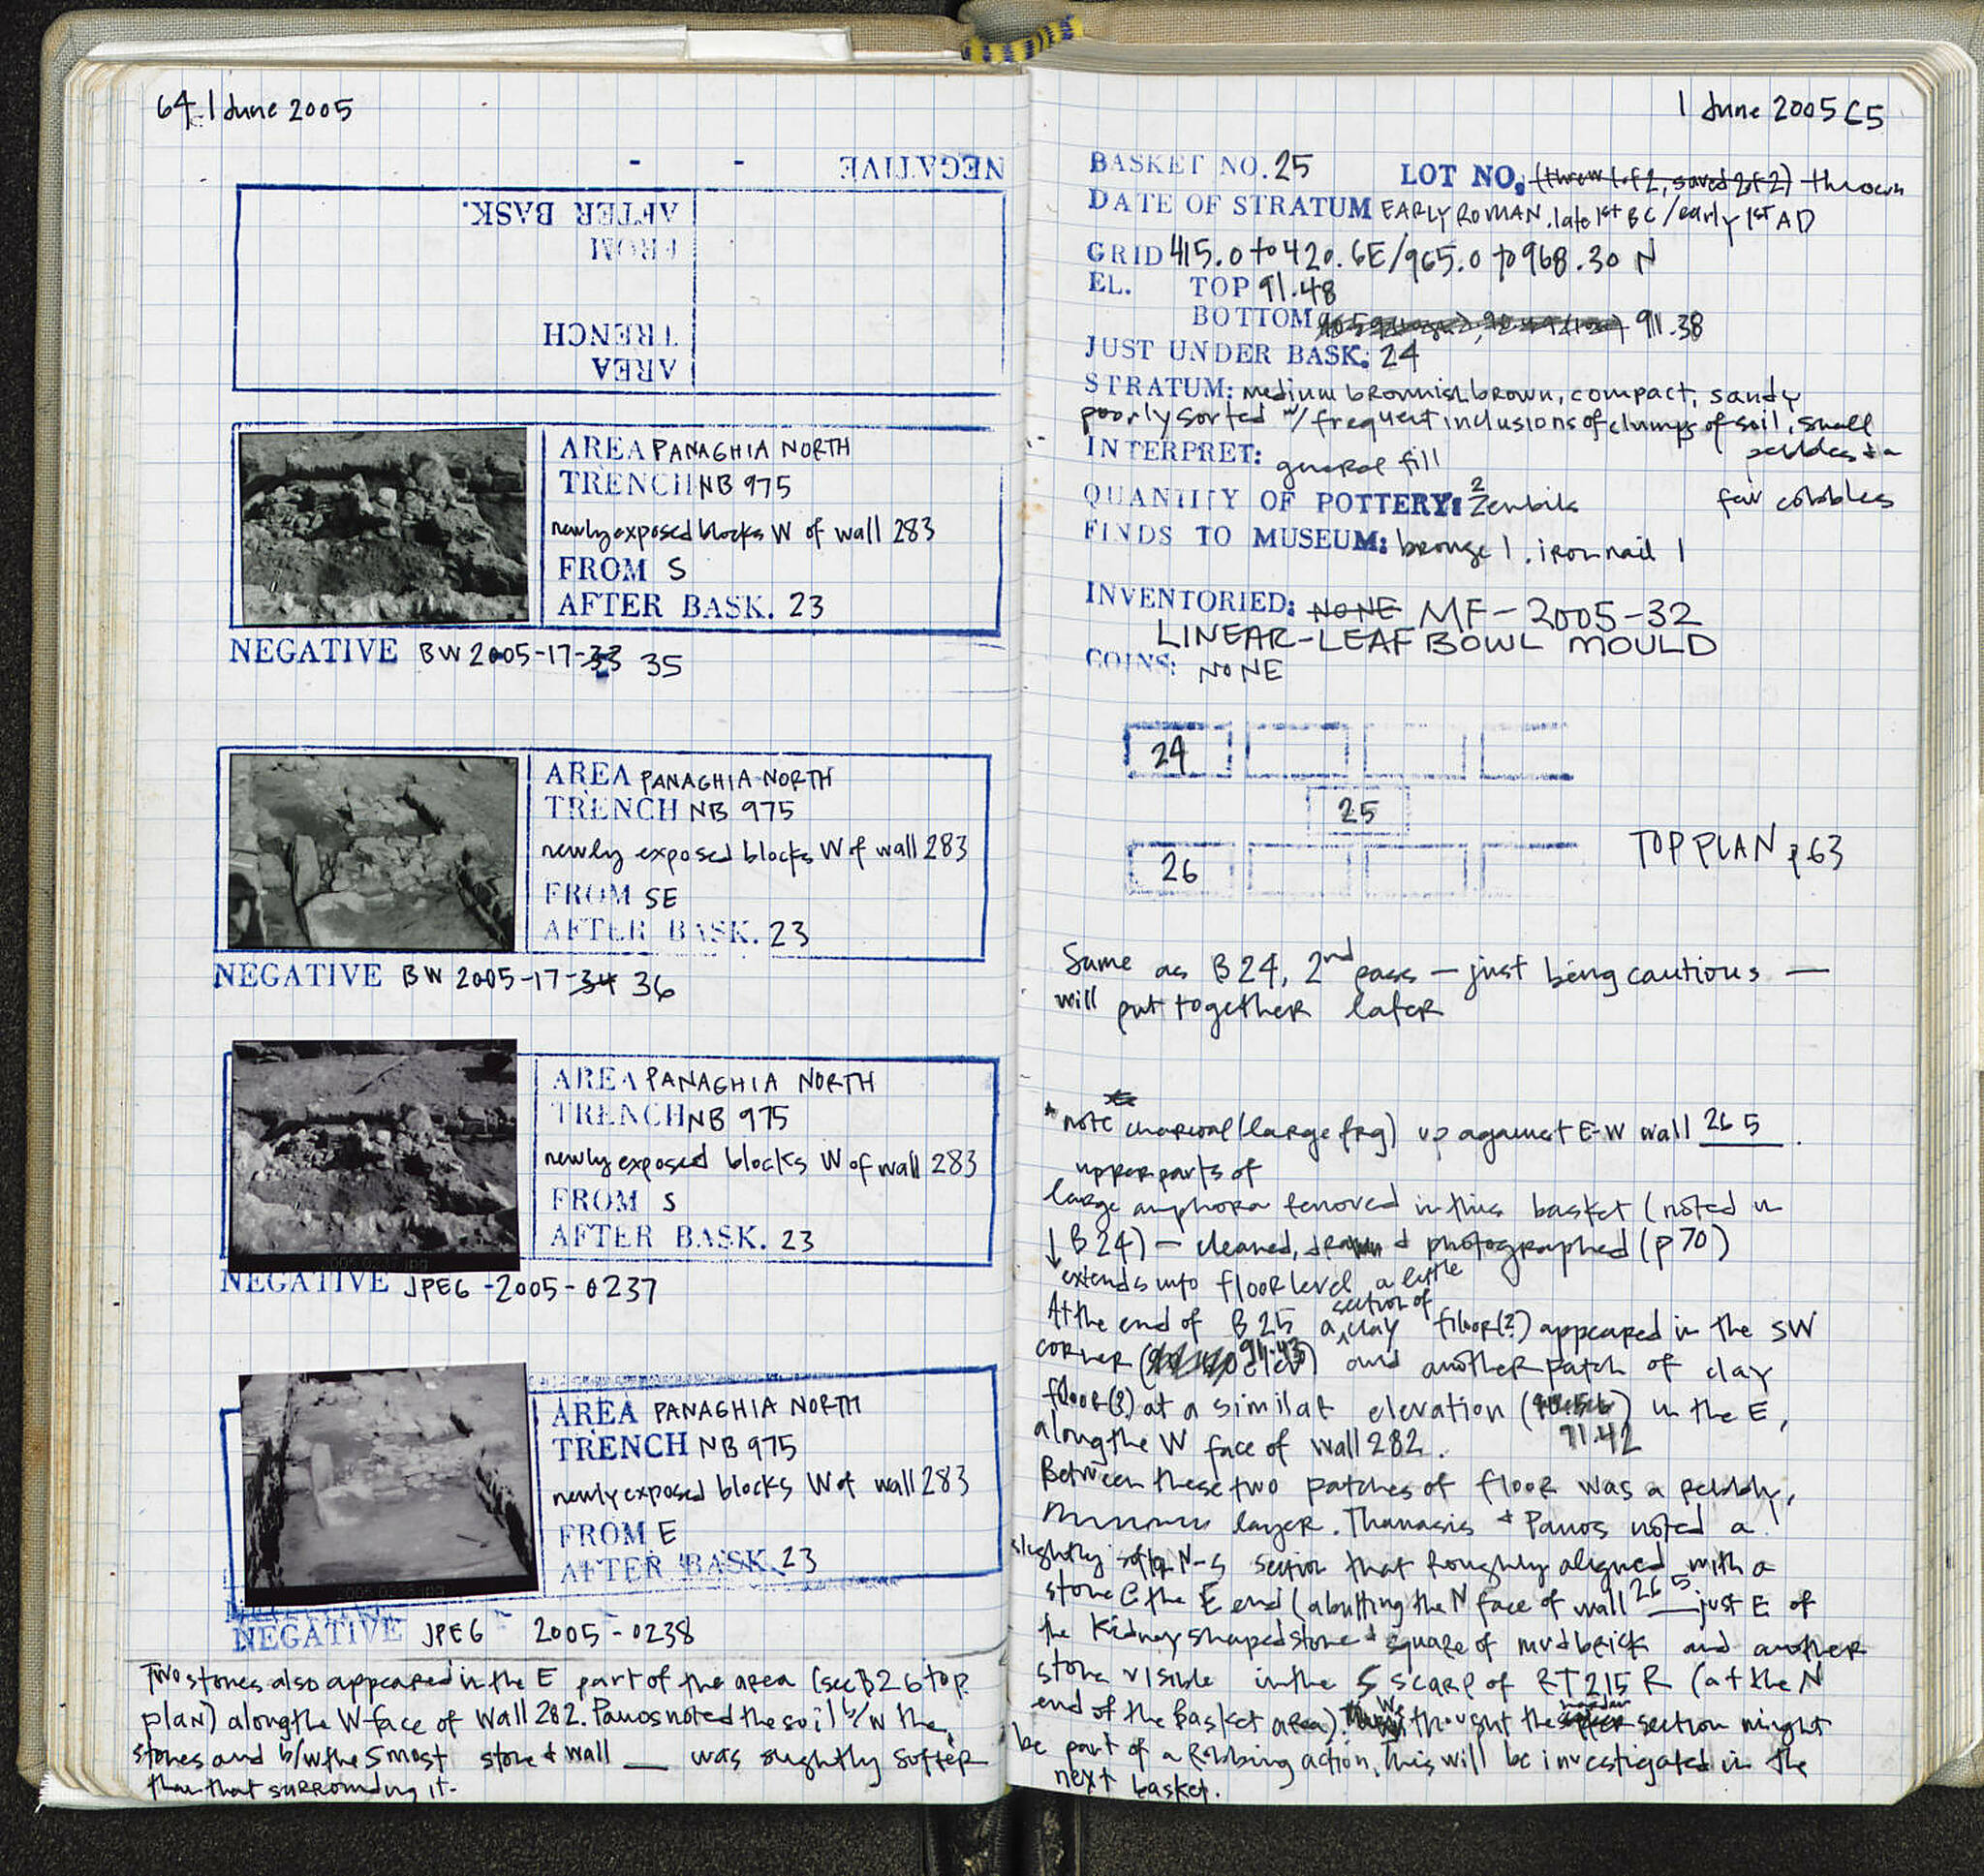 64 1 June 2005
NEGATIVE - -
AFTER BASK.
FROM
TRENCH
AREA
AREA PANAGHIA NORTH
TRENCH NB 975
newly exposed blocks W of wall 283
FROM S
AFTER BASK. 23
NEGATIVE BW 2005-17-33 35
AREA PANAGHIA NORTH
TRENCH NB 975
newly exposed blocks W of wall 283
FROM SE
AFTER BASK. 23
NEGATIVE BW 2005-17-34 36
AREA PANAGHIA NORTH
TRENCH NB 975
newly exposed blocks W of wall 283
FROM S
AFTER BASK. 23
2005 0237.jpg
NEGATIVE JPEG-2005-0237
AREA PANAGHIA NORTH
TRENCH NB 975
newly exposed blocks W of wall 283
FROM E
AFTER BASK. 23
2005 0238.jpg
NEGATIVE JPEG - 2005-0238
Two stones also appeared in the E part of the area (see B26 top
plan) along the W face of wall 282. Panos noted the soil b/w the
stones and b/w the S most stone & wall __ was slightly softer
than that surrounding it.
1 June 2005 65
BASKET NO. 25 LOT NO. (threw 1 of 2, saved 2 of 2) thrown
DATE OF STRATUM EARLY ROMAN, late 1st BC/early 1st AD
GRID 415.0 to 420.6E/965.0 to 968.30 N
EL. TOP 91.48
BOTTOM 91.38
JUST UNDER BASK: 24
STRATUM: medium brownish brown, compact, sandy
poorly sorted w/ frequent inclusions of clumps of soil, small
pebbles + a
INTERPRET: general fill
fair cobbles
QUANTITY OF POTTERY: 2 zembils
FINDS TO MUSEUM: bronze 1, iron nail 1
INVENTORIED: NONE MF-2005-32
LINEAR-LEAF BOWL MOULD
COINS: NONE
24
25
26
TOP PLAN p.63
Same as B24, 2nd pass — just being cautious —
will put together later
*note charcoal (large frg) up against E-W wall 265.
upper parts of
large amphora removed in this basket (noted in
↓ B24) — cleaned, drawn & photographed (p70)
extends into floor level a little
At the end of B25 a section of clay floor(?) appeared in the SW
corner (91.43) and another patch of clay
floor(?) at a similar elevation (90.56) in the E,
91.42
along the W face of wall 282.
Between these two patches of floor was a pebbly,
layer. Thanasis & Panos noted a
slightly softer N-S section that roughly aligned with a
stone @ the E end (abutting the N face of wall 265 just E of
the kidney shaped stone & square of mudbrick and another
stone visible in the S scarp of RT 215 R (at the N
end of the basket area). We thought the harder section might
be part of a robbing action, this will be investigated in the
next basket.